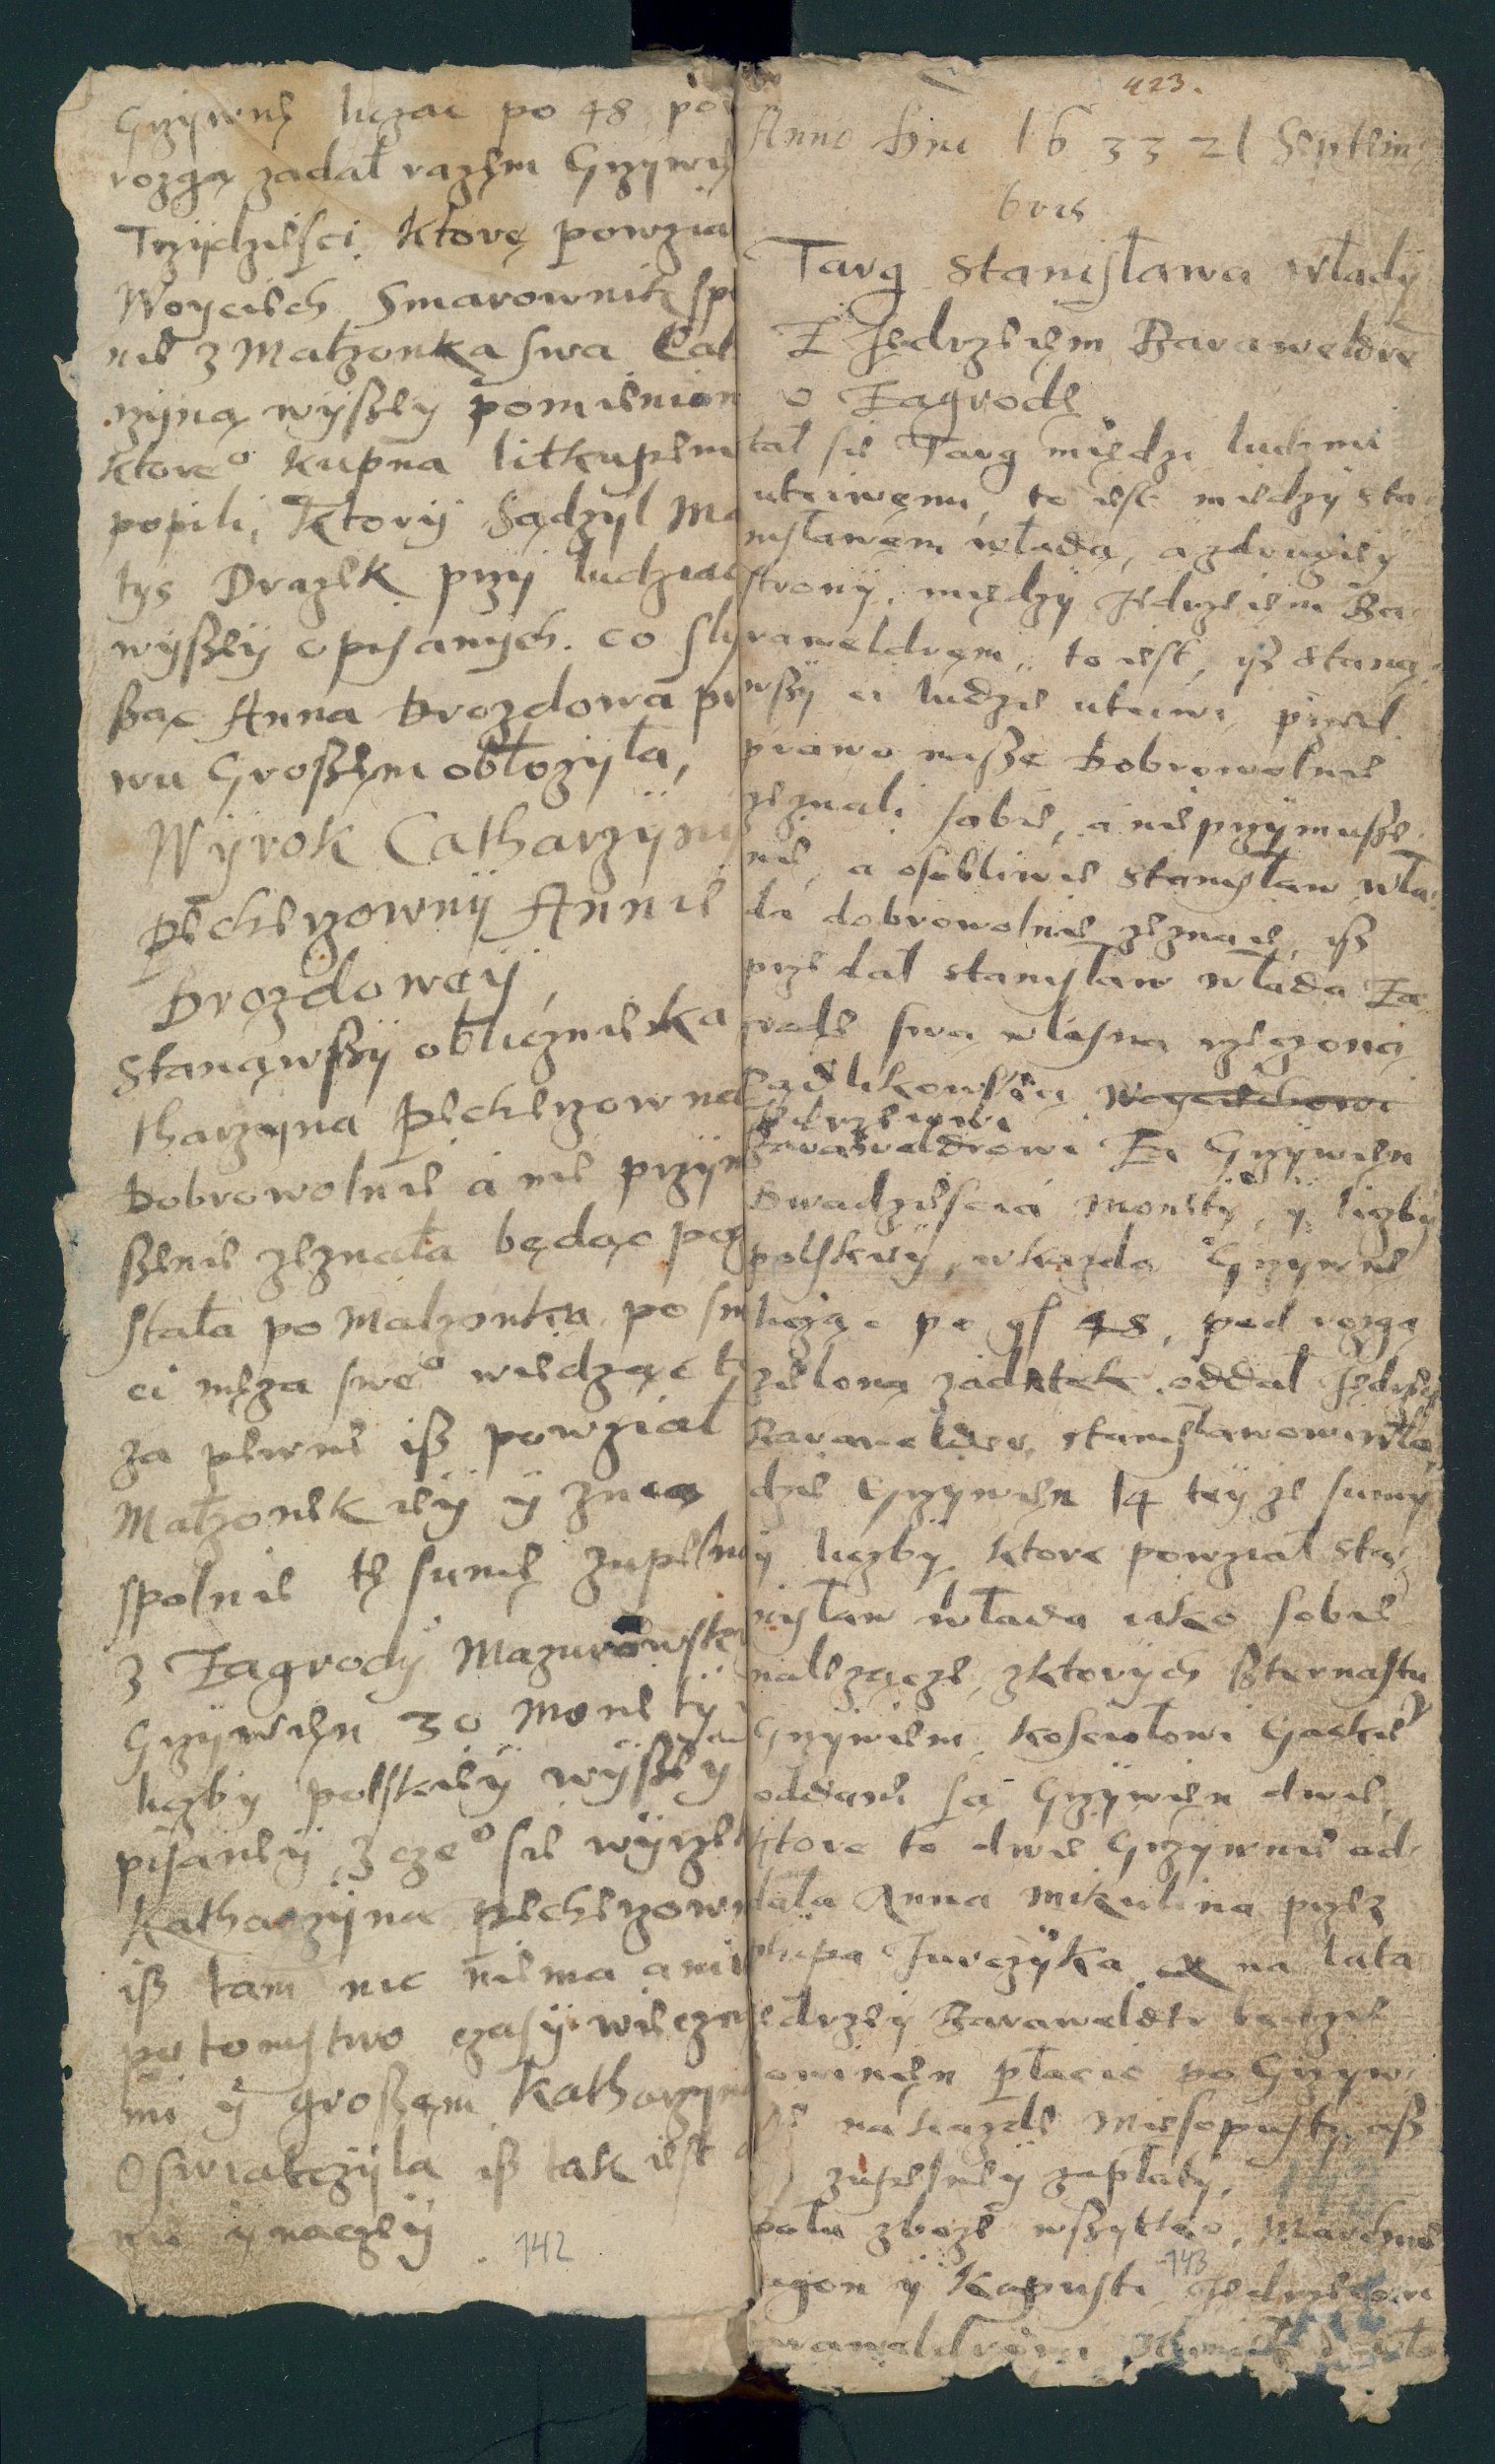 Grzÿwnę licząc po 48 po
rozgą zadał razęm Grzywię
Trzÿdziesci, Ktorę powzia
Woyciech Smarownik spo
nie z Małzonką swą Cat
rzÿną wÿszeÿ pomienion
Ktoreº kupna litkupem
popili, Ktorÿ sądzÿl Ma
tÿs Drązek przÿ ludziac
wÿszeÿ opisanÿch. co slÿ
sząc Anna Drozdowa pr
wu Groszęm obłozÿła,
Wÿrok Catharzÿnÿ
Pecherzownÿ Annie
Drozdoweÿ,
Stanąwszÿ oblicznie Ka
tharzyna Pecherzowna
Dobrowolnie a nie przÿm
szenie zeznała będąc poz
stała po Małzonku po sm
ci męza sweº wiedząc t
za pewne isz powział
Małzonek ieÿ ÿ z nią
spolnie tę sumę zupełn
z Zagrodÿ Mazurowskie
Grzÿwięn 30 Monetÿ
liczbÿ polskieÿ wÿszeÿ
pisaneÿ, z czeº sie wÿrze
Katharzÿna Pecherzown
isz tam nic niema ani
potomstwo czasÿ wieczn
mi ÿ groszęm Katharzyn
Oswiatczÿła, isz tak iest a
nie ÿnaczeÿ
142
423.
Anno Dni 1633 21 Septem
bris
Targ Stanisława Władÿ
Z Jedrzeięm Baraweldrę
o Zagrodę
tał sie Targ między ludzmi
utciwęmi, to iest miedzÿ Sta
nisławęm Władą, a z drugieÿ
stronÿ, międzÿ Jedrzeięm Ba
raweldręm, to iest, isz staną
wszÿ ci ludzie utciwi przed
prawo nasze Dobrowolnie
zeznali sobie, a nie przÿmusze
nie, a osobliwie Stanisław Wła
da dobrowolnie zeznaie, isz
przedał Stanisław Włada Za
grode swą własną rzeczoną
Woyciechowi
Jedrzeiowi
Baraweldrowi Za Grzÿwięn
Dwadziescia Monetÿ, ÿ liczbÿ
polskieÿ, w kazdą Grzÿwnę
licząc po gſ 48, pod rozgą
zieloną zadatek oddał Jedrzeÿ
Baraweldер Stanisławowi Wła
dzie Grzÿwięn 14 teÿ ze sumÿ
ÿ liczbÿ, Ktore powział Sta
nisław Włada iako sobie
nalezącze, z ktorÿch szternastu
Grzÿwięn Kosciołowi Gackieÿ
oddane są Grzÿwięn dwie,
Ktore to dwie Grzÿwnie od
dała Anna Mikulina przez
philipa Jurczÿka a na lata
Jedrzeÿ Baraweldr będzie
owinięn płacic po Grzÿw
nie na kazde Miesopustÿ, asz
do zupełneÿ zapłatÿ,
poła zboze wszÿtko, Marchwie
zagon ÿ Kapustÿ Jedrzeiowi
143
raweldrowi